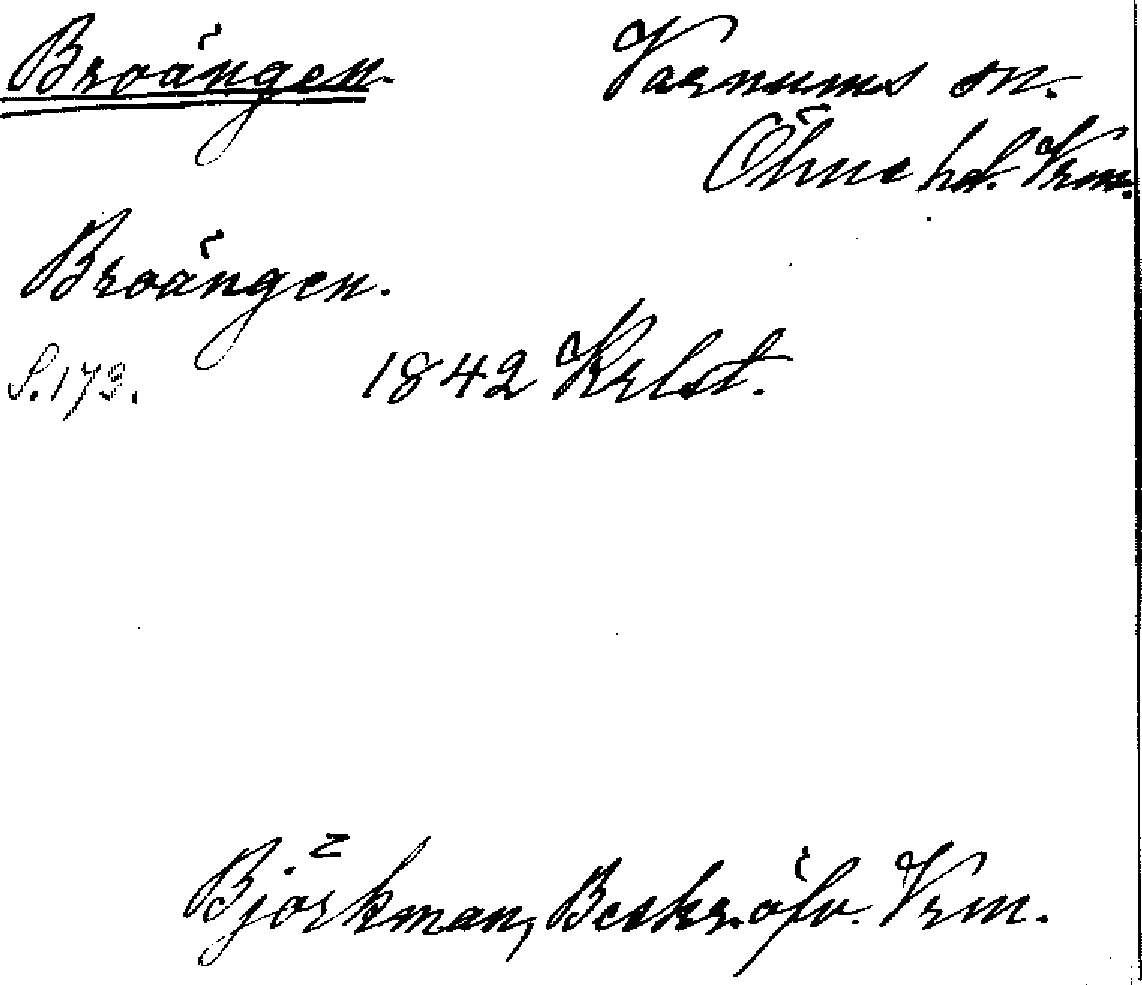 Broängen. Varnums sn.
Ölme hd. Vrm.
Broängen.
S. 173. 1842 Krlst.
Björkman, Beskr. öfv. Vrm.